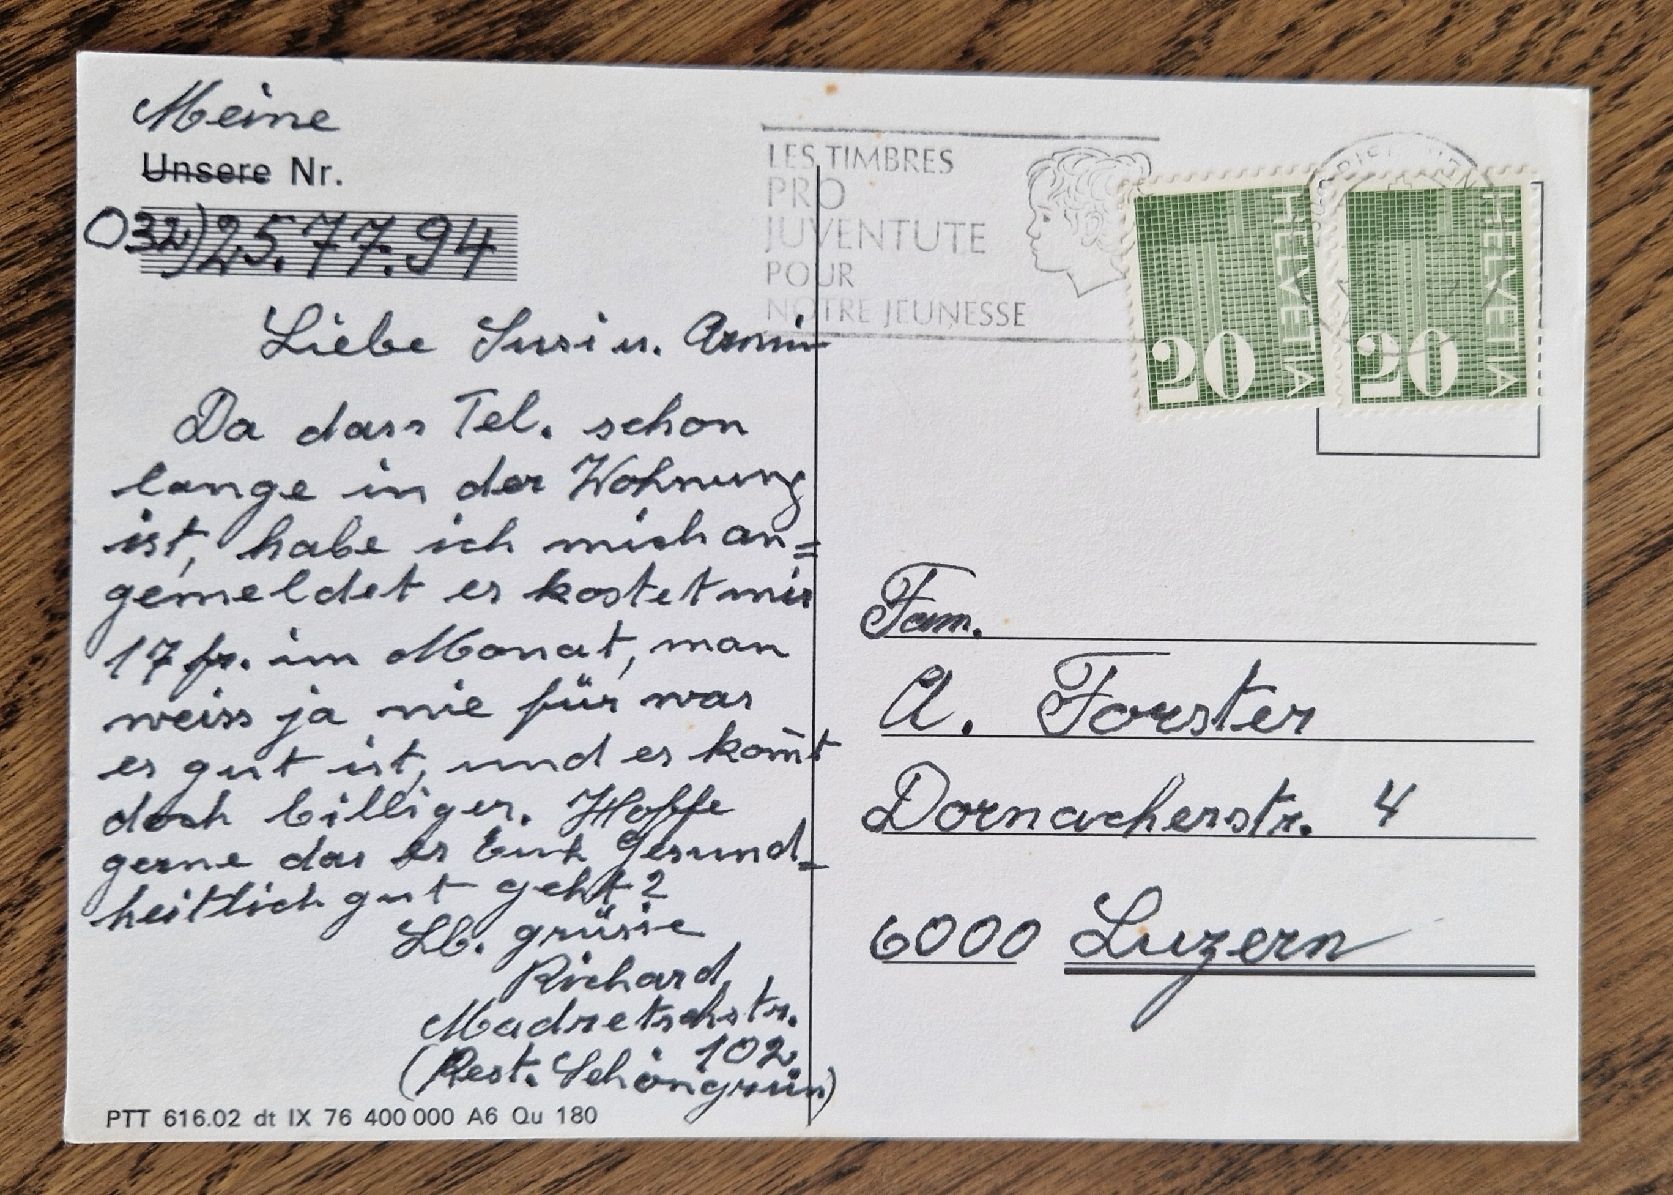 Meine
Unsere Nr.
032) 25.77.94
Liebe Susi u. Armin
Da dass Tel. schon
lange in der Wohnung
ist, habe ich mich an=
gemeldet es kostet mir
17 fr. im Monat, man
weiss ja nie für was
es gut ist, und es kom̄t
doch billiger. Hoffe
gerne das es Euch Gesund=
heitlich gut geht?
Lb. grüsse
Richard
Madretschstr.
102
(Rest. Schöngrün)
PTT 616.02 dt IX 76 400 000 A6 Qu 180
LES TIMBRES
PRO
JUVENTUTE
POUR
NOTRE JEUNESSE
HELVETIA
20
HELVETIA
20
Fam.
A. Forster
Dornacherstr. 4
6000 Luzern